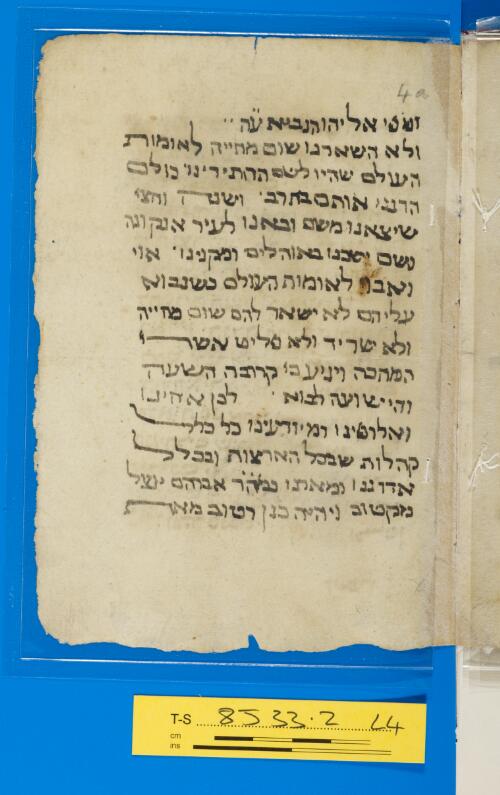 4a
ומפי אליהו הנביא ע״ה
ולא השארנו שום מחייה לאומות
העולם שהיו לשם כולם
הרגנו אותם בחרב וישנה וחצי
שיצאנו משם ובאנו לעיר אנקונה
ושם ישבנו באוהלים ומקנינו אוי
ואבוי לאומות העולם כשנבוא
עליהם לא ישאר להם שום מחייה
ולא שריד ולא פליט אשרי
המחכה ויגיע כי קרובה השעה
והיישועה לבוא לכן אחינו
ואלופינו ומיודעינו כל כללי
קהלות שבכל הארצות ובכלל
אדוננו ומאתנו אברהם יוצל
מקטוב ויהיה כגן רטוב מאת
T-S 8533.2 L4
cm
ins